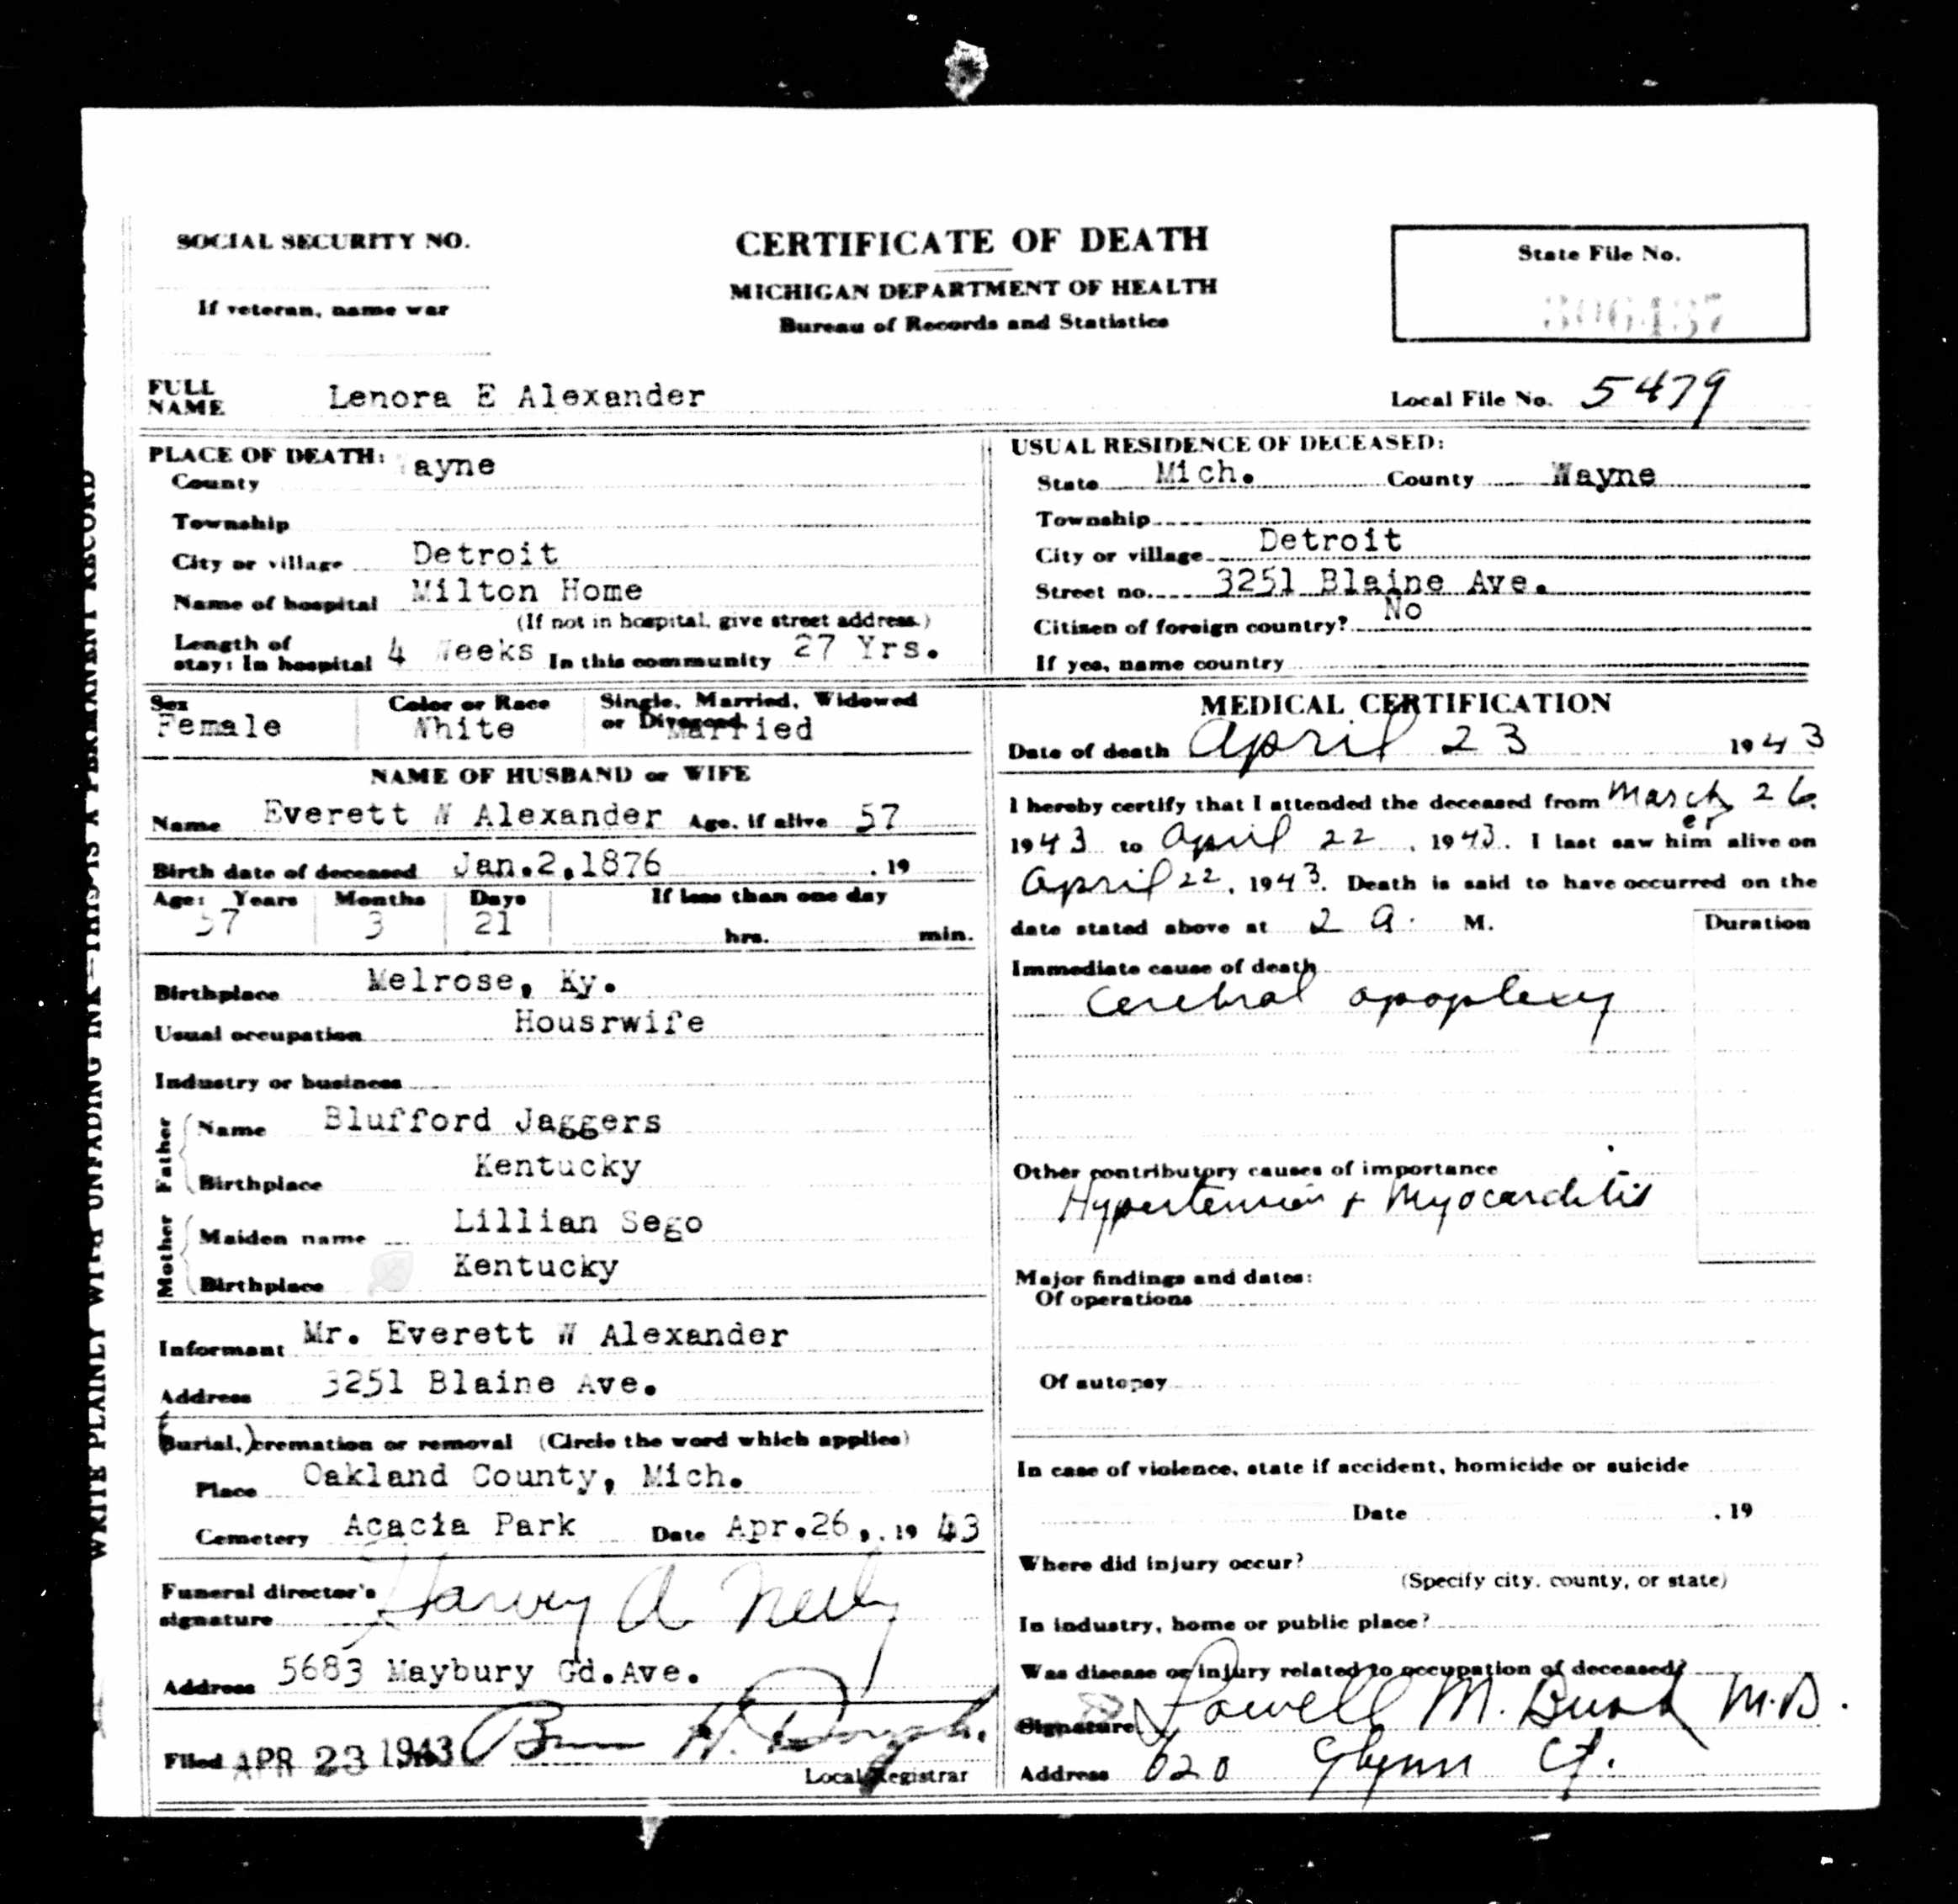 SOCIAL SECURITY NO.
If veteran, name war
CERTIFICATE OF DEATH
MICHIGAN DEPARTMENT OF HEALTH
Bureau of Records and Statistics
State File No.
306437
FULL NAME Lenora E Alexander
Local File No. 5479
PLACE OF DEATH:
County ayne
Township
City or village Detroit
Name of hospital Milton Home
(If not in hospital, give street address.)
Length of stay: In hospital 4 Weeks In this community 27 Yrs.
USUAL RESIDENCE OF DECEASED:
State Mich. County Wayne
Township
City or village Detroit
Street no. 3251 Blaine Ave.
Citizen of foreign country? No
If yes, name country
Sex Female
Color or Race White
Single, Married, Widowed or Divorced Married
NAME OF HUSBAND or WIFE
Name Everett W Alexander Age, if alive 57
Birth date of deceased Jan.2,1876 , 19
Age: Years Months Days If less than one day
57 3 21 hrs. min.
Birthplace Melrose, Ky.
Usual occupation Housrwife
Industry or business
Father
Name Blufford Jaggers
Birthplace Kentucky
Mother
Maiden name Lillian Sego
Birthplace Kentucky
Informant Mr. Everett W Alexander
Address 3251 Blaine Ave.
(Burial,) cremation or removal (Circle the word which applies)
Place Oakland County, Mich.
Cemetery Acacia Park Date Apr.26, , 19 43
Funeral director's signature Harvey A Neely
Address 5683 Maybury Gd.Ave.
Filed APR 23 1943
Local Registrar
MEDICAL CERTIFICATION
Date of death April 23 1943
I hereby certify that I attended the deceased from March 26
1943 to April 22, 1943. I last saw him er alive on
April 22, 1943. Death is said to have occurred on the
date stated above at 2 a. M.
Duration
Immediate cause of death
Cerebral apoplexy
Other contributory causes of importance
Hypertension + Myocarditis
Major findings and dates:
Of operations
Of autopsy
In case of violence, state if accident, homicide or suicide
Date , 19
Where did injury occur?
(Specify city, county, or state)
In industry, home or public place?
Was disease or injury related to occupation of deceased?
Signature Powell M. M.D.
Address 620 Glynn Ct.
WRITE PLAINLY WITH UNFADING INK—THIS IS A PERMANENT RECORD